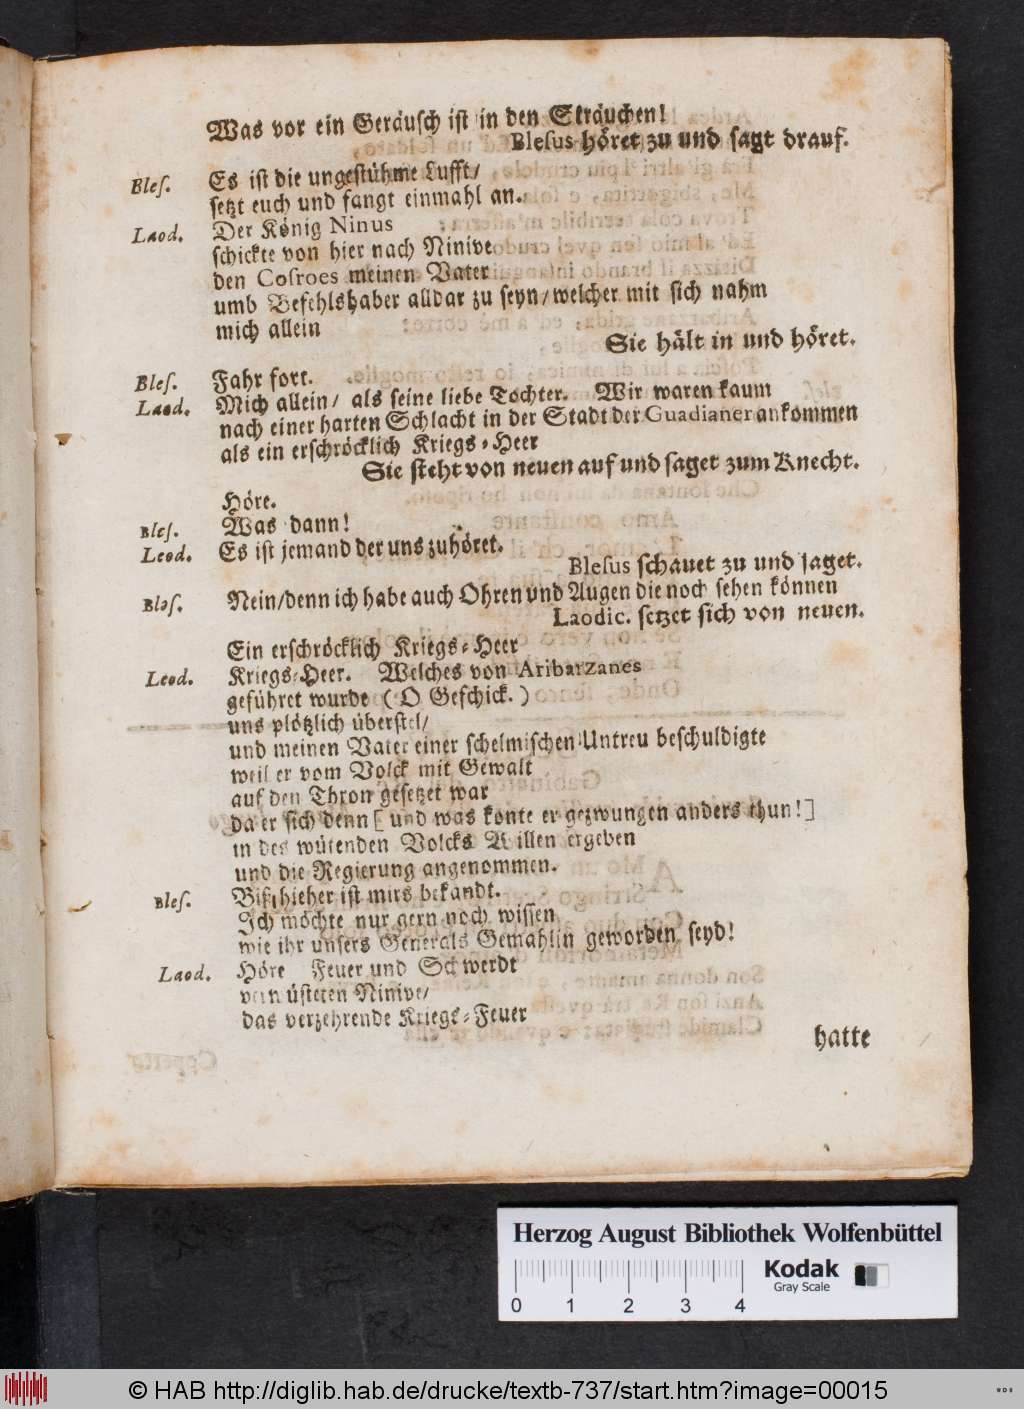 Was vor ein Geräusch ist in den Sträuchen!
Blesus höret zu und sagt drauf.
Bles. Es ist die ungestühme Lufft/
setzt euch und fangt einmahl an.
Laod. Der König Ninus
schickte von hier nach Ninive
den Cosroes meinen Vater
umb Befehlshaber alldar zu seyn/welcher mit sich nahm
mich allein
Sie hält in und höret.
Bles. Fahr fort.
Laod. Mich allein/ als seine liebe Tochter. Wir waren kaum
nach einer harten Schlacht in der Stadt der Guadianer ankommen
als ein erschröcklich Kriegs-Heer
Sie steht von neuen auf und saget zum Knecht.
Höre.
Bles. Was dann!
Leod. Es ist jemand der uns zuhöret.
Blesus schauet zu und saget.
Bles. Nein/denn ich habe auch Ohren und Augen die noch sehen können
Laodic. setzet sich von neuen.
Ein erschröcklich Kriegs-Heer
Leod. Kriegs-Heer. Welches von Aribarzanes
geführet wurde (O Geschick.)
uns plötzlich überfiel/
und meinen Vater einer schelmischen Untreu beschuldigte
weil er vom Volck mit Gewalt
auf den Thron gesetzet war
da er sich denn [ und was konte er gezwungen anders thun!]
in des wütenden Volcks Willen ergeben
und die Regierung angenommen.
Bles. Biß hieher ist mirs bekandt.
Ich möchte nur gern noch wissen
wie ihr unsers Generals Gemahlin geworden seyd!
Laod. Höre Feuer und Schwerdt
verwüsteten Ninive/
das verzehrende Kriegs-Feuer
hatte
Herzog August Bibliothek Wolfenbüttel
Kodak
Gray Scale
0 1 2 3 4
© HAB http://diglib.hab.de/drucke/textb-737/start.htm?image=00015